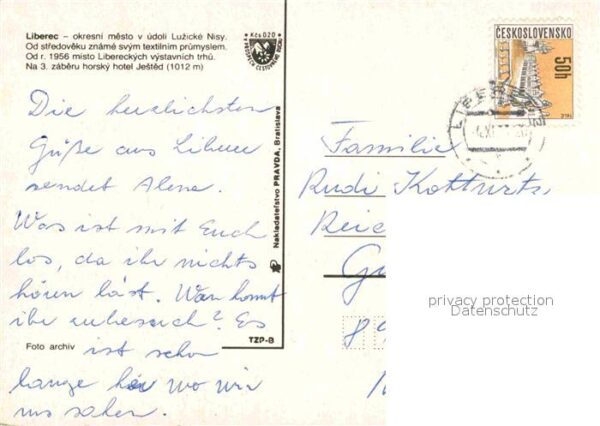 Liberec – okresní město v údolí Lužické Nisy.
Od středověku známé svým textilním průmyslem.
Od r. 1956 místo Libereckých výstavních trhů.
Na 3. záběru horský hotel Ještěd (1012 m)
Kčs 0,20
ČESKOSLOVENSKO
50h
Nakladatelství PRAVDA, Bratislava
Die herzlichsten
Güße aus Liberec
sendet Alena.
Was ist mit Euch
los, da ihr nichts
hören läst. Wan kommt
ihr zu besuch? Es
ist schon
lange her wo wir
uns sahen.
Foto archiv
TZP-B
Familie
Rudi
privacy protection
Datenschutz